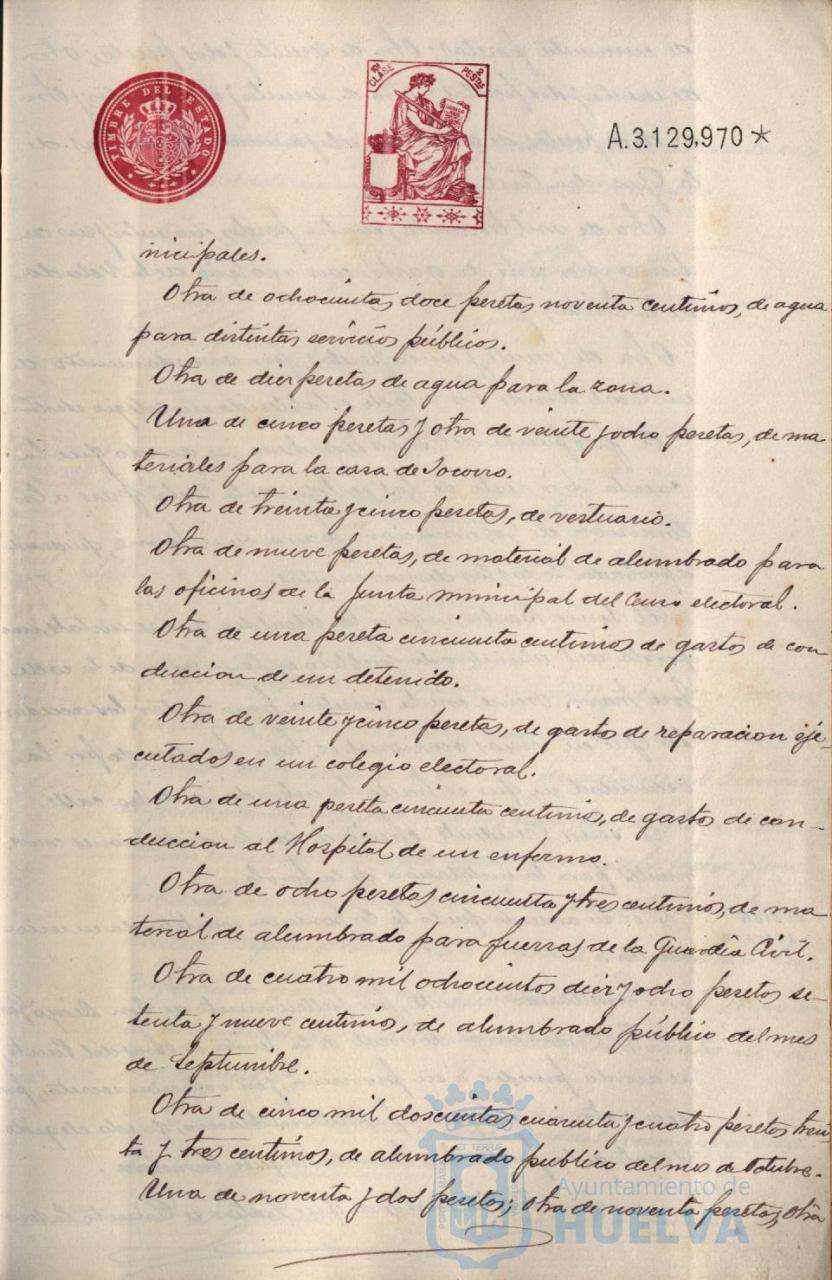 TIMBRE DEL ESTADO
10ª CLASE
2 PESTAS
A.3.129,970 *
nicipales.
Otra de ochocientas doce pesetas noventa centimos, de agua
para distintas servicios públicos.
Otra de diez pesetas de agua para la zona.
Una de cinco pesetas y otra de veinte y ocho pesetas, de ma
teriales para la casa de Socorro.
Otra de treinta y cinco pesetas, de vestuario.
Otra de nueve pesetas, de material de alumbrado para
las oficinas de la Junta municipal del Censo electoral.
Otra de una peseta cincuenta centimos de gastos de con
duccion de un detenido.
Otra de veinte y cinco pesetas, de gastos de reparacion eje-
cutados en un colegio electoral.
Otra de una peseta cincuenta centimos, de gastos de con-
duccion al Hospital de un enfermo.
Otra de ocho pesetas cincuenta y tres centimos, de ma
terial de alumbrado para fuerzas de la Guardia Civil.
Otra de cuatro mil ochocientos diez y ocho pesetas se-
tenta y nueve centimos, de alumbrado público del mes
de Septiembre.
Otra de cinco mil doscientas cuarenta y cuatro pesetas trein
ta y tres centimos, de alumbrado publico del mes de Octubre.
Una de noventa y dos pesetas; otra de noventa pesetas; otra
Ayuntamiento de
HUELVA